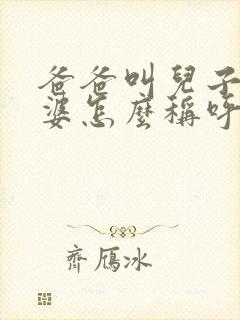 爸爸叫兒子
婆怎麼稱呼
齊雁冰